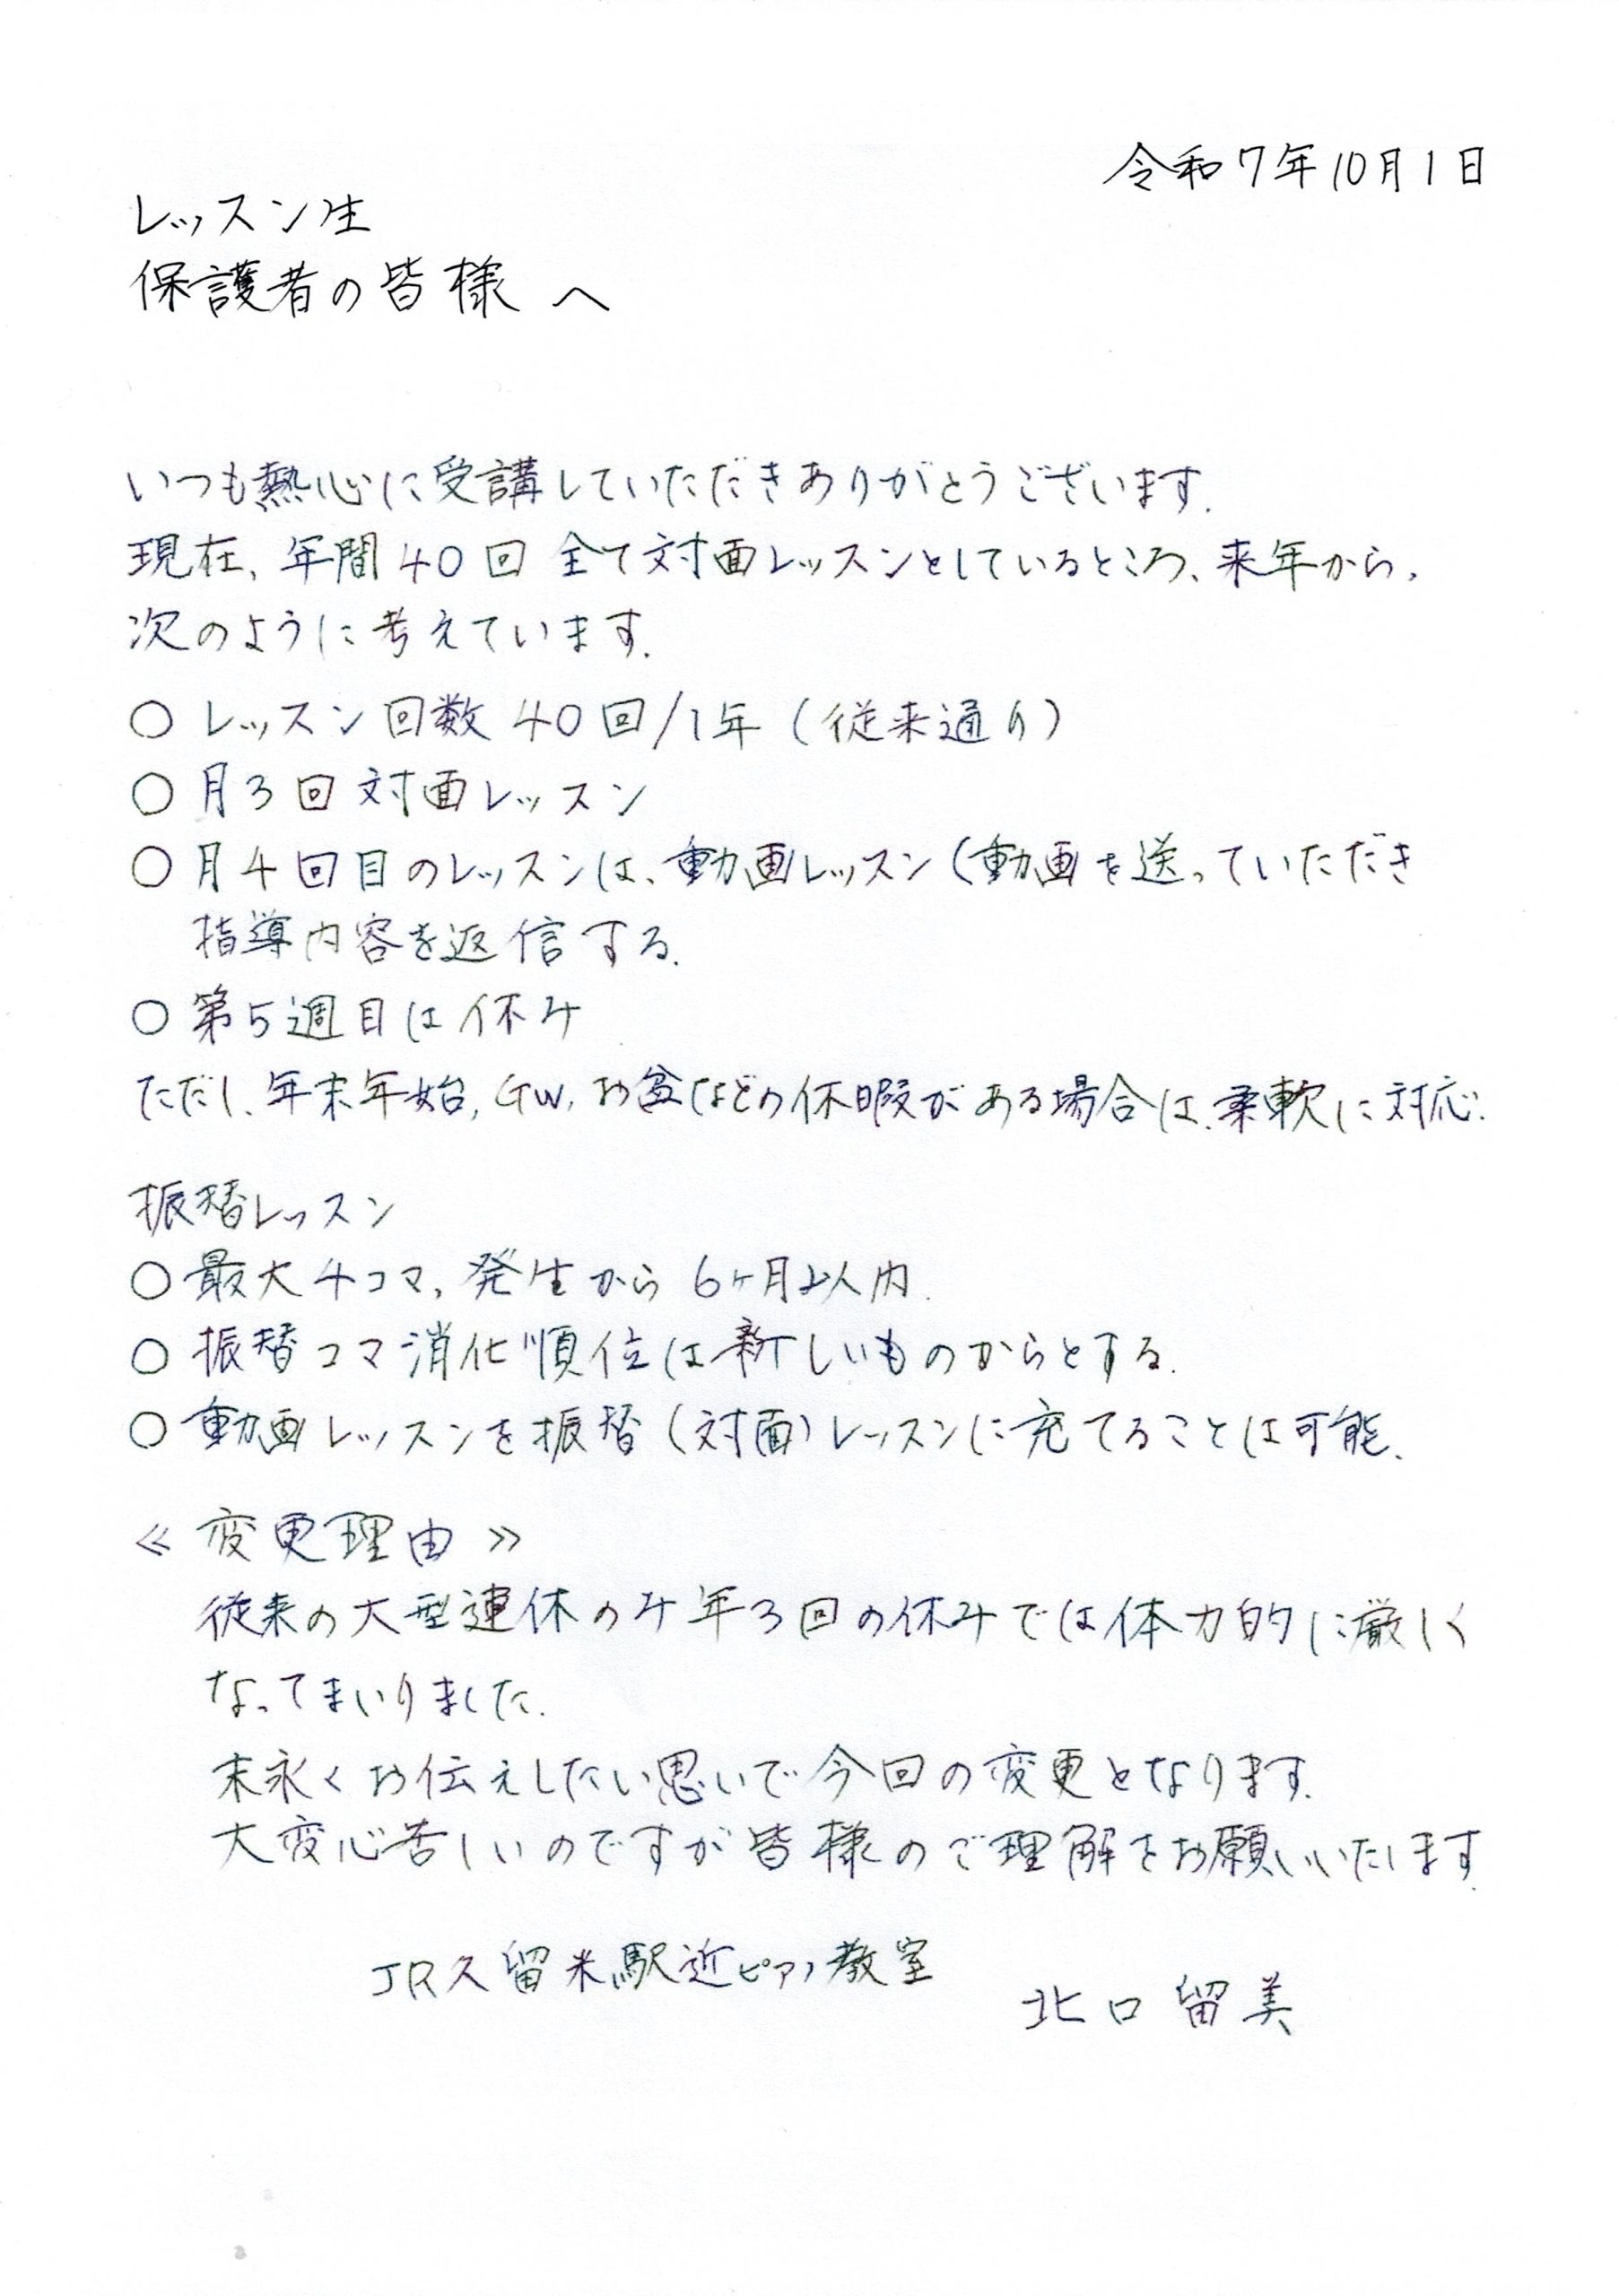 令和7年10月1日
レッスン生
保護者の皆様 へ
いつも熱心に受講していただきありがとうございます.
現在、年間40回 全て対面レッスンとしているところ、来年から、
次のように考えています.
○ レッスン回数 40回/1年 (従来通り)
○ 月3回 対面レッスン
○ 月4回目のレッスンは、動画レッスン(動画を送っていただき
指導内容を返信する.
○ 第5週目は休み
ただし、年末年始, GW, お盆などの休暇がある場合は、柔軟に対応.
振替レッスン
○ 最大4コマ, 発生から 6ヶ月以内.
○ 振替コマ消化順位は新しいものからとする.
○ 動画レッスンを振替(対面)レッスンに充てることは可能.
≪ 変更理由 ≫
従来の大型連休のみ年3回の休みでは体力的に厳しく
なってまいりました.
末永くお伝えしたい思いで今回の変更となります.
大変心苦しいのですが皆様のご理解をお願いいたします.
JR久留米駅近ピアノ教室
北口留美